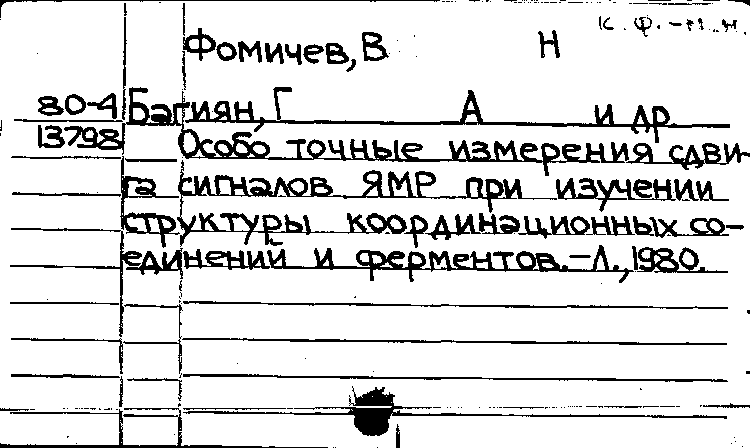 к.ф.-м.н.
Фомичев, В Н
80-4 Багиян, Г А и др
13798 Особо точные измерения сдви-
га сигналов ЯМР при изучении
структуры координационных со-
единений и ферментов.-Л.,1980.